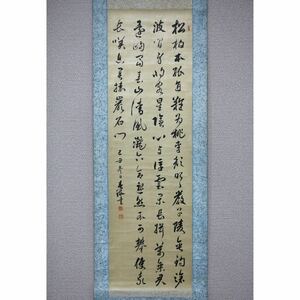 松柏本孤直難為桃李顏昭昭嚴子陵垂釣滄
波間身將客星隱心与浮雲閑長揖萬乘君
還歸富春山清風灑六合邈然不可攀使我
長嘆息冥棲巖石間
己丑冬日